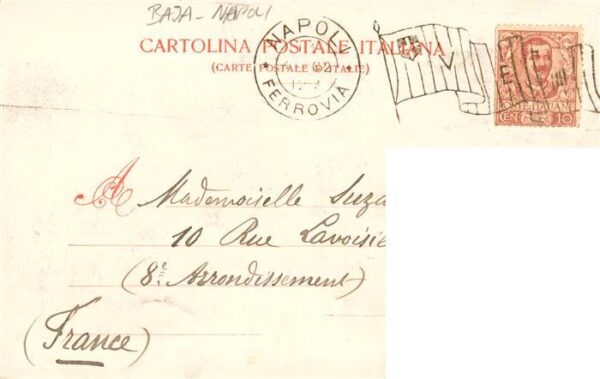 BAJA - NAPOLI
CARTOLINA POSTALE ITALIANA
(CARTE POSTALE D'ITALIE)
NAPOLI
FERROVIA
POSTE ITALIANE
CEN 10
A Mademoiselle Suza
10 Rue Lavoisie
(8e Arrondissement)
(France)